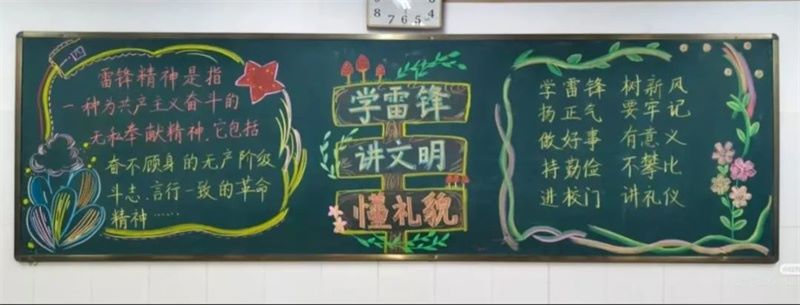 雷锋精神是指
一种为共产主义奋斗的
无私奉献精神，它包括
奋不顾身的无产阶级
斗志、言行一致的革命
精神……
学雷锋
讲文明
懂礼貌
学雷锋 树新风
扬正气 要牢记
做好事 有意义
持勤俭 不攀比
进校门 讲礼仪
8 7 6 5 4